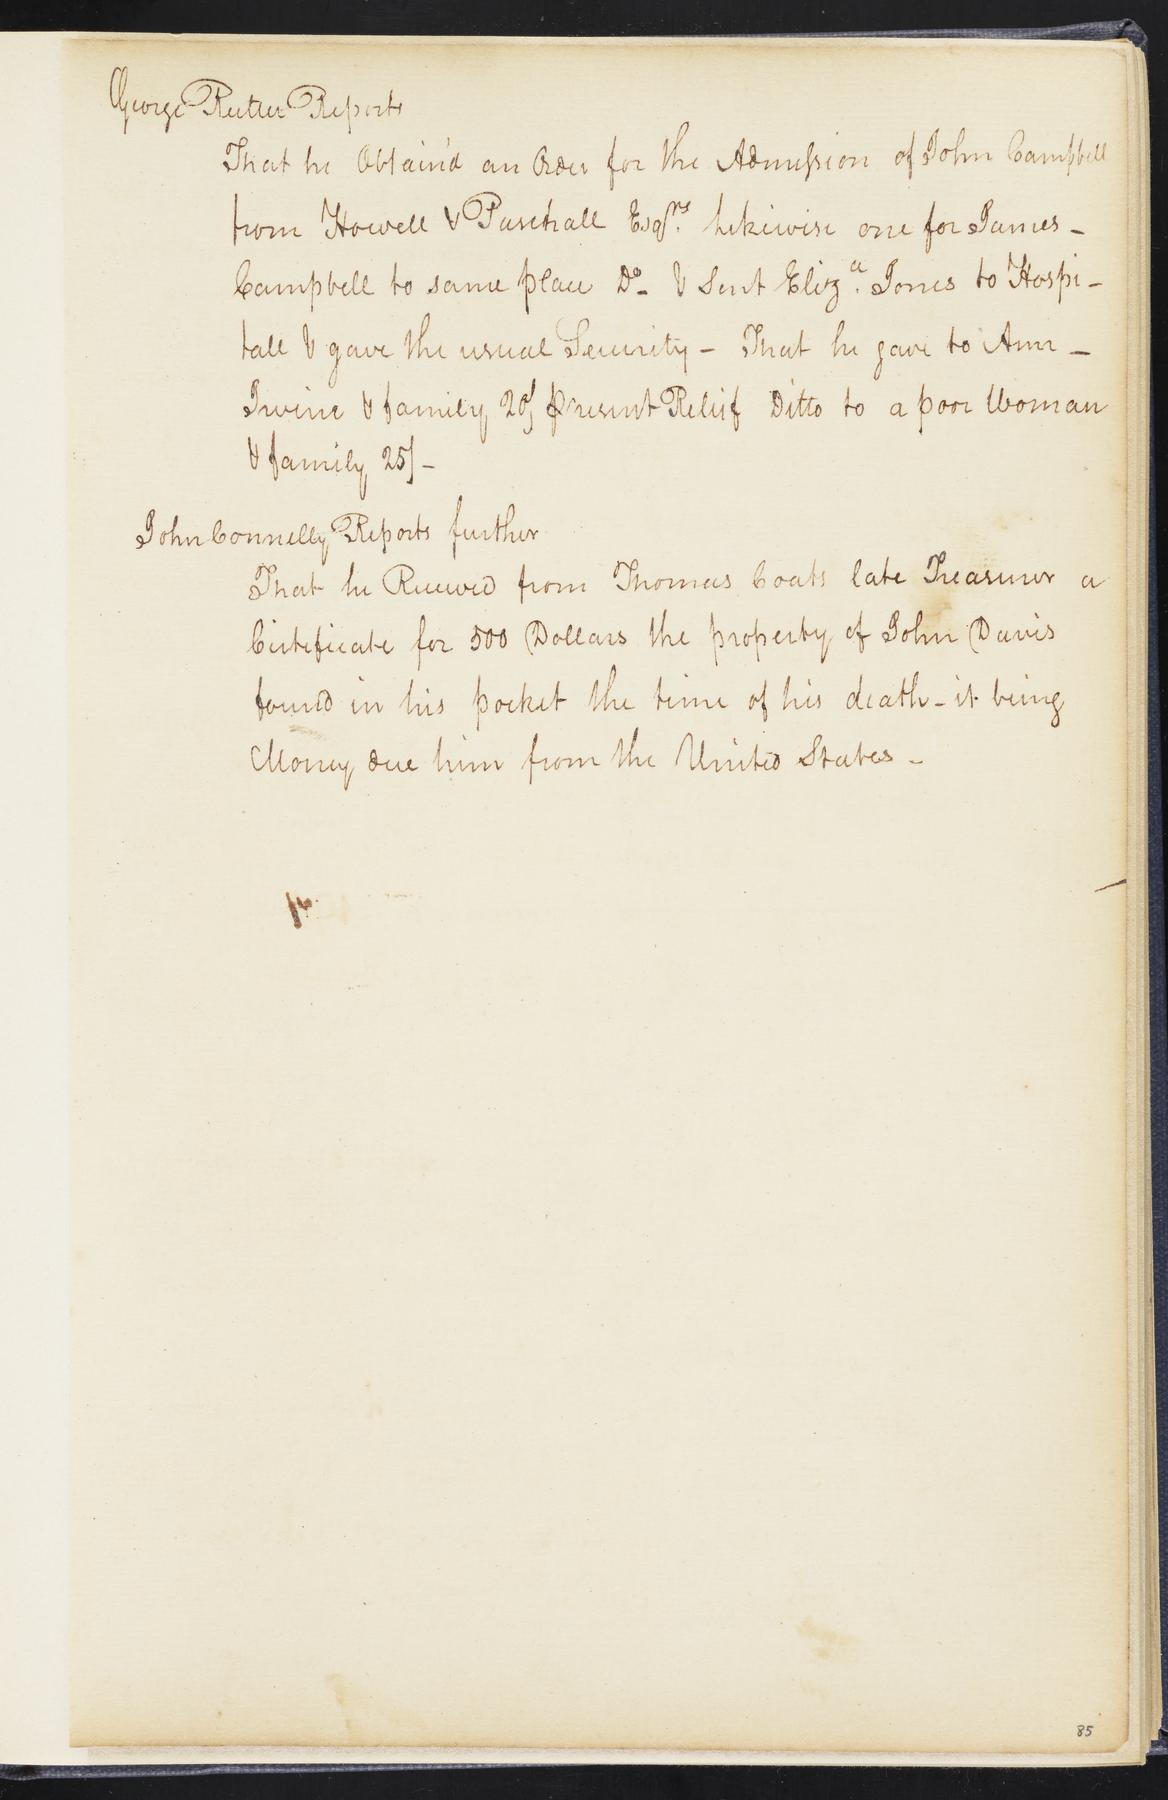 George Rutter Reports
That he Obtain'd an Order for the Admission of John Campbell
from Howell & Paschall Esqrs. likewise one for James -
Campbell to same place Do - & Sent Eliza. Jones to Hospi -
tall & gave the usual Security - That he gave to Ann -
Irvine & family 20/ present Relief Ditto to a poor Woman
& family 25/ -
John Connelly Reports further
That he Received from Thomas Coats late Treasurer a
Certeficate for 500 Dollars the property of John Davis
found in his pocket the time of his death - it being
Money due him from the United States -
85